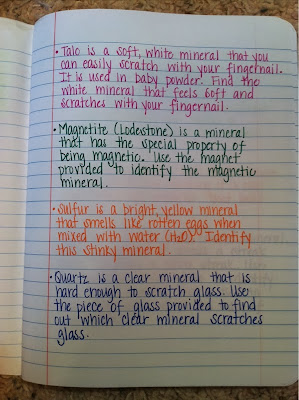 • Talc is a soft, white mineral that you
can easily scratch with your fingernail.
It is used in baby powder. Find the
white mineral that feels soft and
scratches with your fingernail.
• Magnetite (Lodestone) is a mineral
that has the special property of
being magnetic. Use the magnet
provided to identify the magnetic
mineral.
• Sulfur is a bright, yellow mineral
that smells like rotten eggs when
mixed with water (H₂O). Identify
this stinky mineral.
• Quartz is a clear mineral that is
hard enough to scratch glass. Use
the piece of glass provided to find
out which clear mineral scratches
glass.